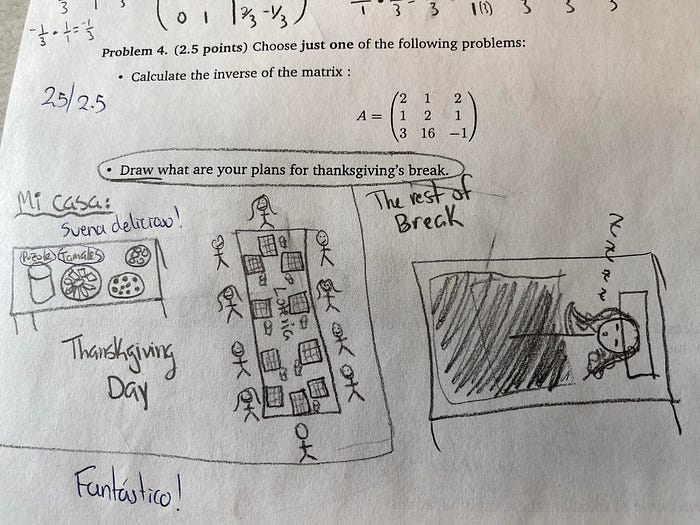 3 1 3
( 0 1 | 2/3 -1/3 )
1 3 3 1(3) 3 3 5
-1/3 · 1/1 = -1/3
Problem 4. (2.5 points) Choose just one of the following problems:
• Calculate the inverse of the matrix :
2.5/2.5
A = ( 2 1 2
1 2 1
3 16 −1 )
• Draw what are your plans for thanksgiving's break.
Mi casa:
Suena delicioso!
Pozole Tamales
Thanksgiving
Day
Lotería
The rest of
Break
z z z z
Fantástico!